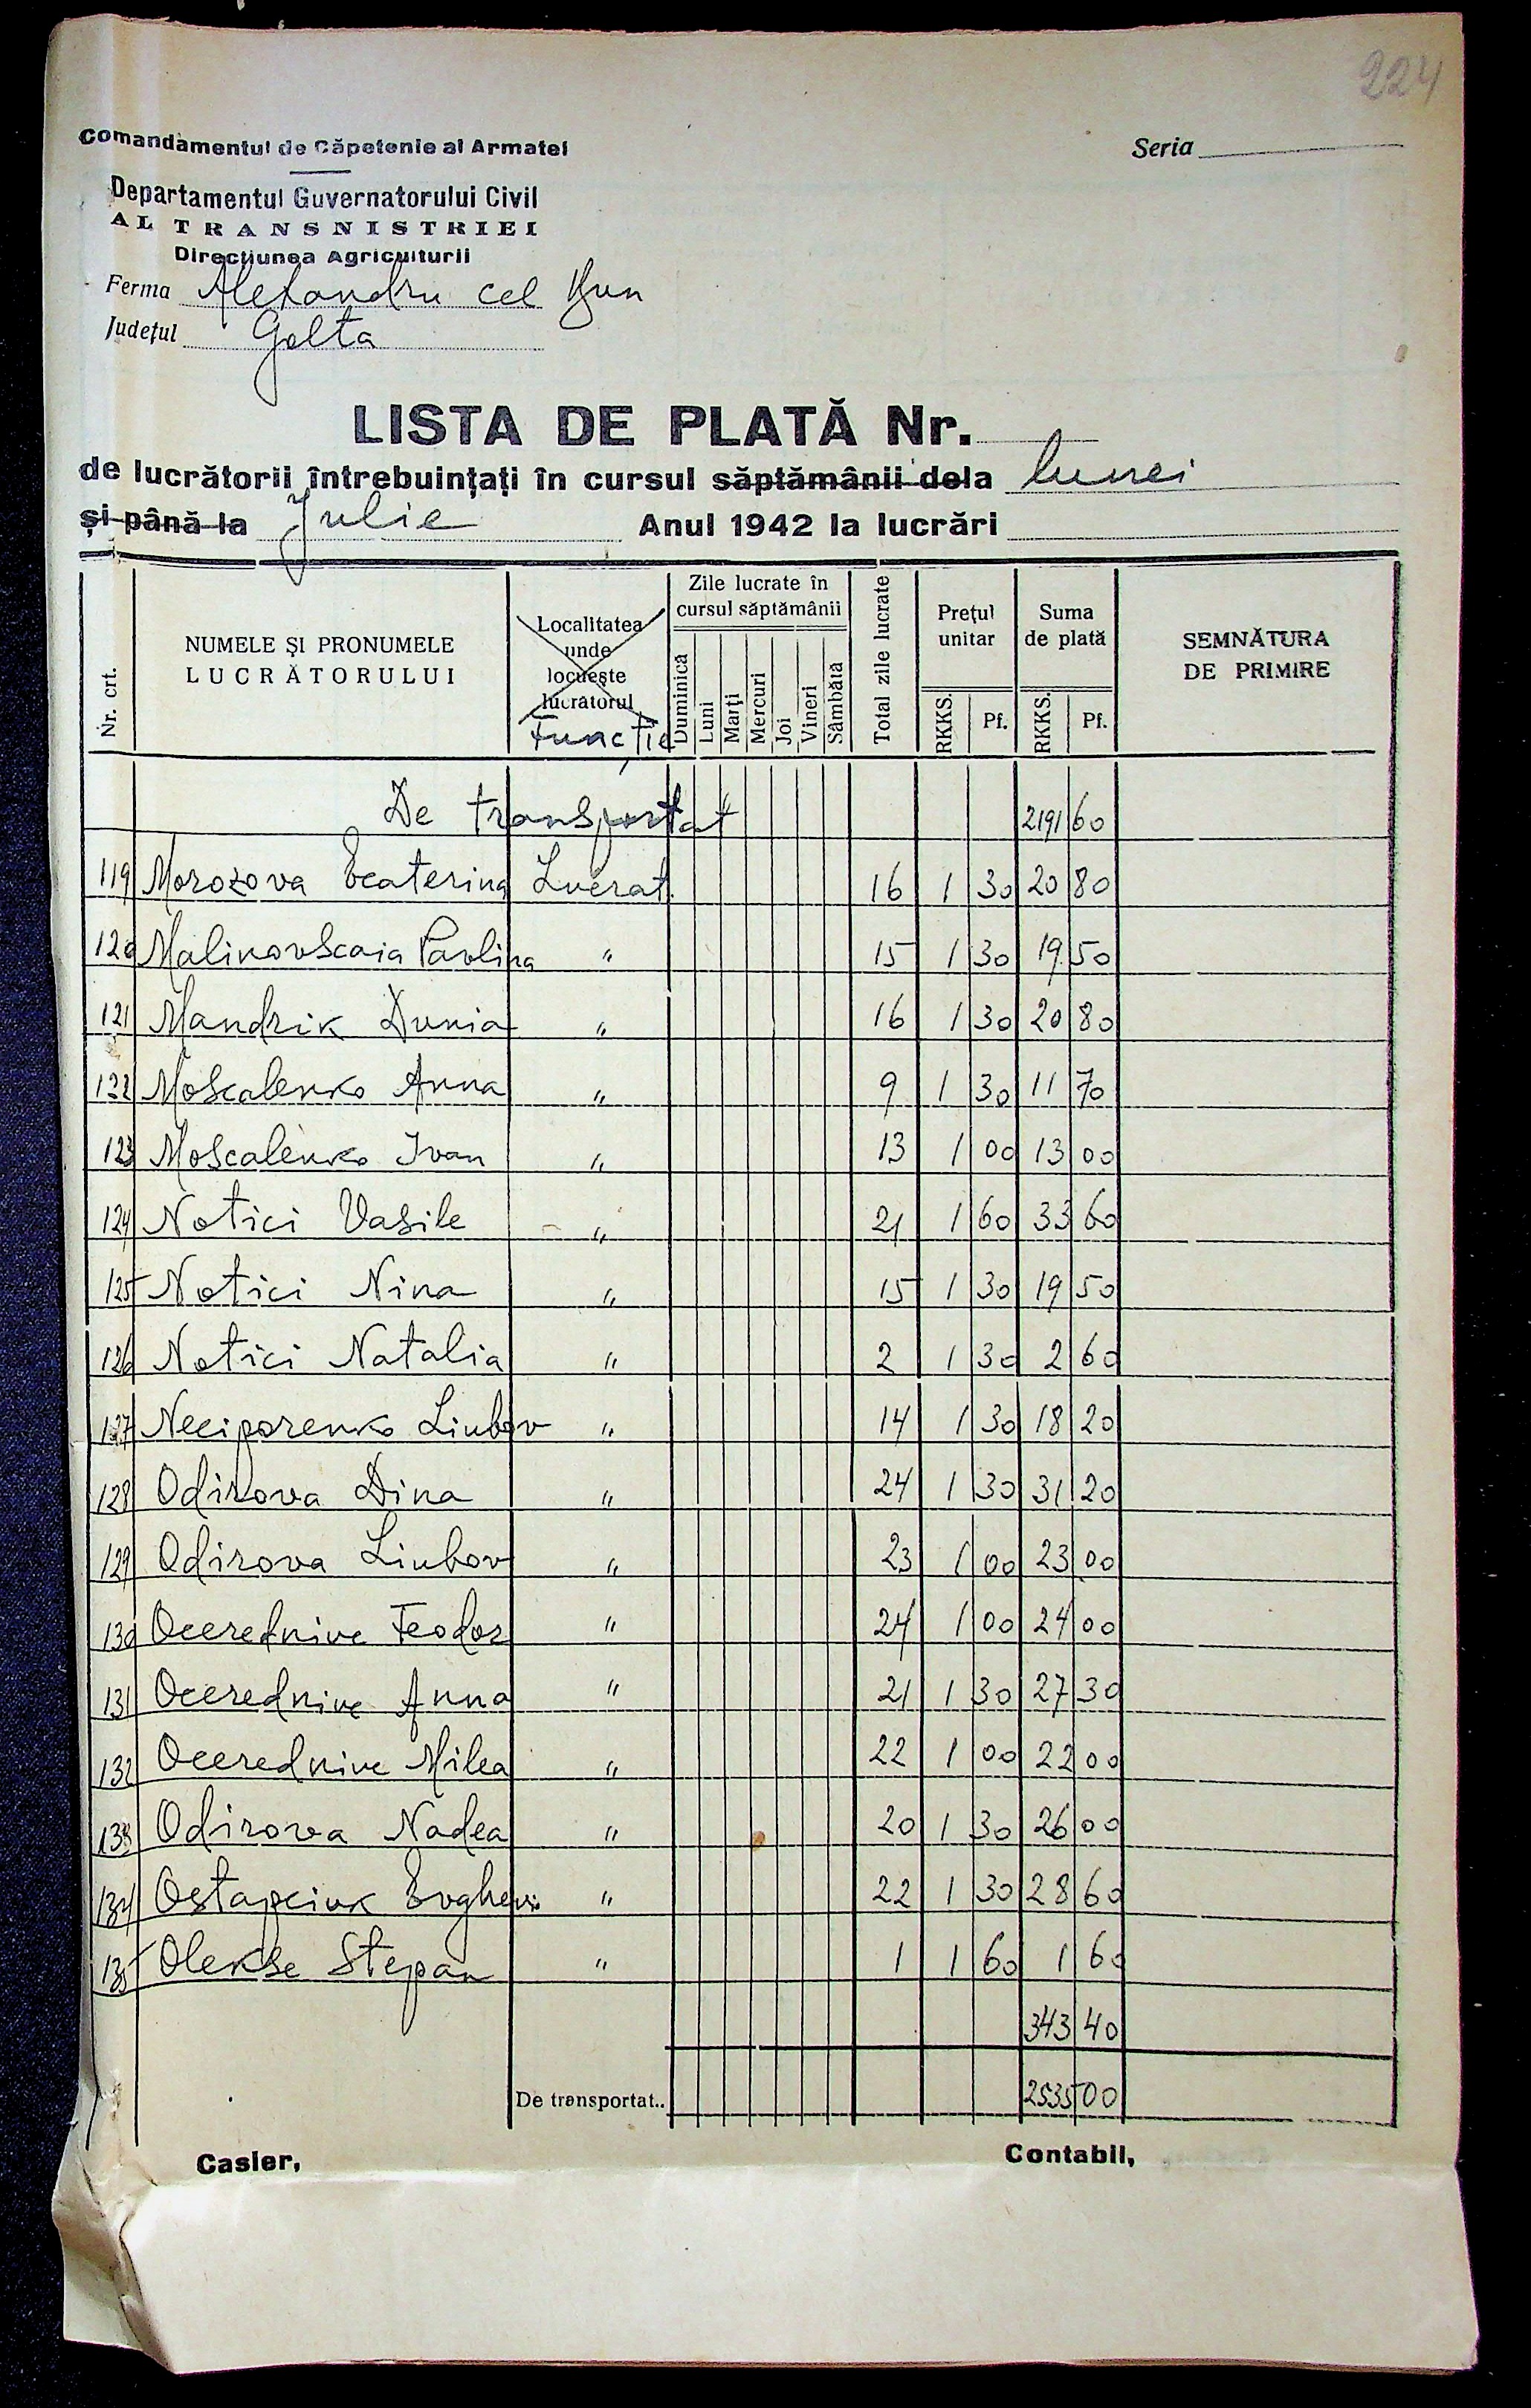 224
Comandamentul de Căpetenie al Armatei
Seria
Departamentul Guvernatorului Civil
AL TRANSNISTRIEI
Direcțiunea Agriculturii
Ferma Alexandru cel Bun
Județul Golta
LISTA DE PLATĂ Nr.
de lucrătorii întrebuințați în cursul săptămânii dela lunei
și până la Julie Anul 1942 la lucrări
Nr. crt.
NUMELE ȘI PRONUMELE
LUCRĂTORULUI
Localitatea
unde
locuește
lucrătorul
Funcție
Zile lucrate în
cursul săptămânii
Duminică Luni Marți Mercuri Joi Vineri Sâmbăta
Total zile lucrate
Prețul
unitar
RKKS. Pf.
Suma
de plată
RKKS. Pf.
SEMNĂTURA
DE PRIMIRE
De transportat 2191 60
119 Morozova Ecaterina Lucrat. 16 1 30 20 80
120 Malinovscaia Pavlina " 15 1 30 19 50
121 Mandrik Dunia " 16 1 30 20 80
122 Moscalenko Anna " 9 1 30 11 70
123 Moscalenko Ivan " 13 1 00 13 00
124 Notici Vasile " 21 1 60 33 60
125 Notici Nina " 15 1 30 19 50
126 Notici Natalia " 2 1 30 2 60
127 Neciporenko Liubov " 14 1 30 18 20
128 Odirova Dina " 24 1 30 31 20
129 Odirova Liubov " 23 1 00 23 00
130 Ocerednive Feodor " 24 1 00 24 00
131 Ocerednive Anna " 21 1 30 27 30
132 Ocerednive Milea " 22 1 00 22 00
133 Odirova Nadea " 20 1 30 26 00
134 Ostapciuk Evgheni " 22 1 30 28 60
135 Olekse Stepan " 1 1 60 1 60
343 40
De transportat.. 2535 00
Casier,
Contabil,